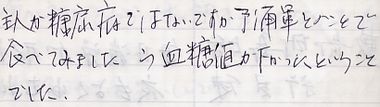 主人が糖尿病ではないですが予備軍とのことで
食べてみました。ら血糖値が下がったということ
でした。